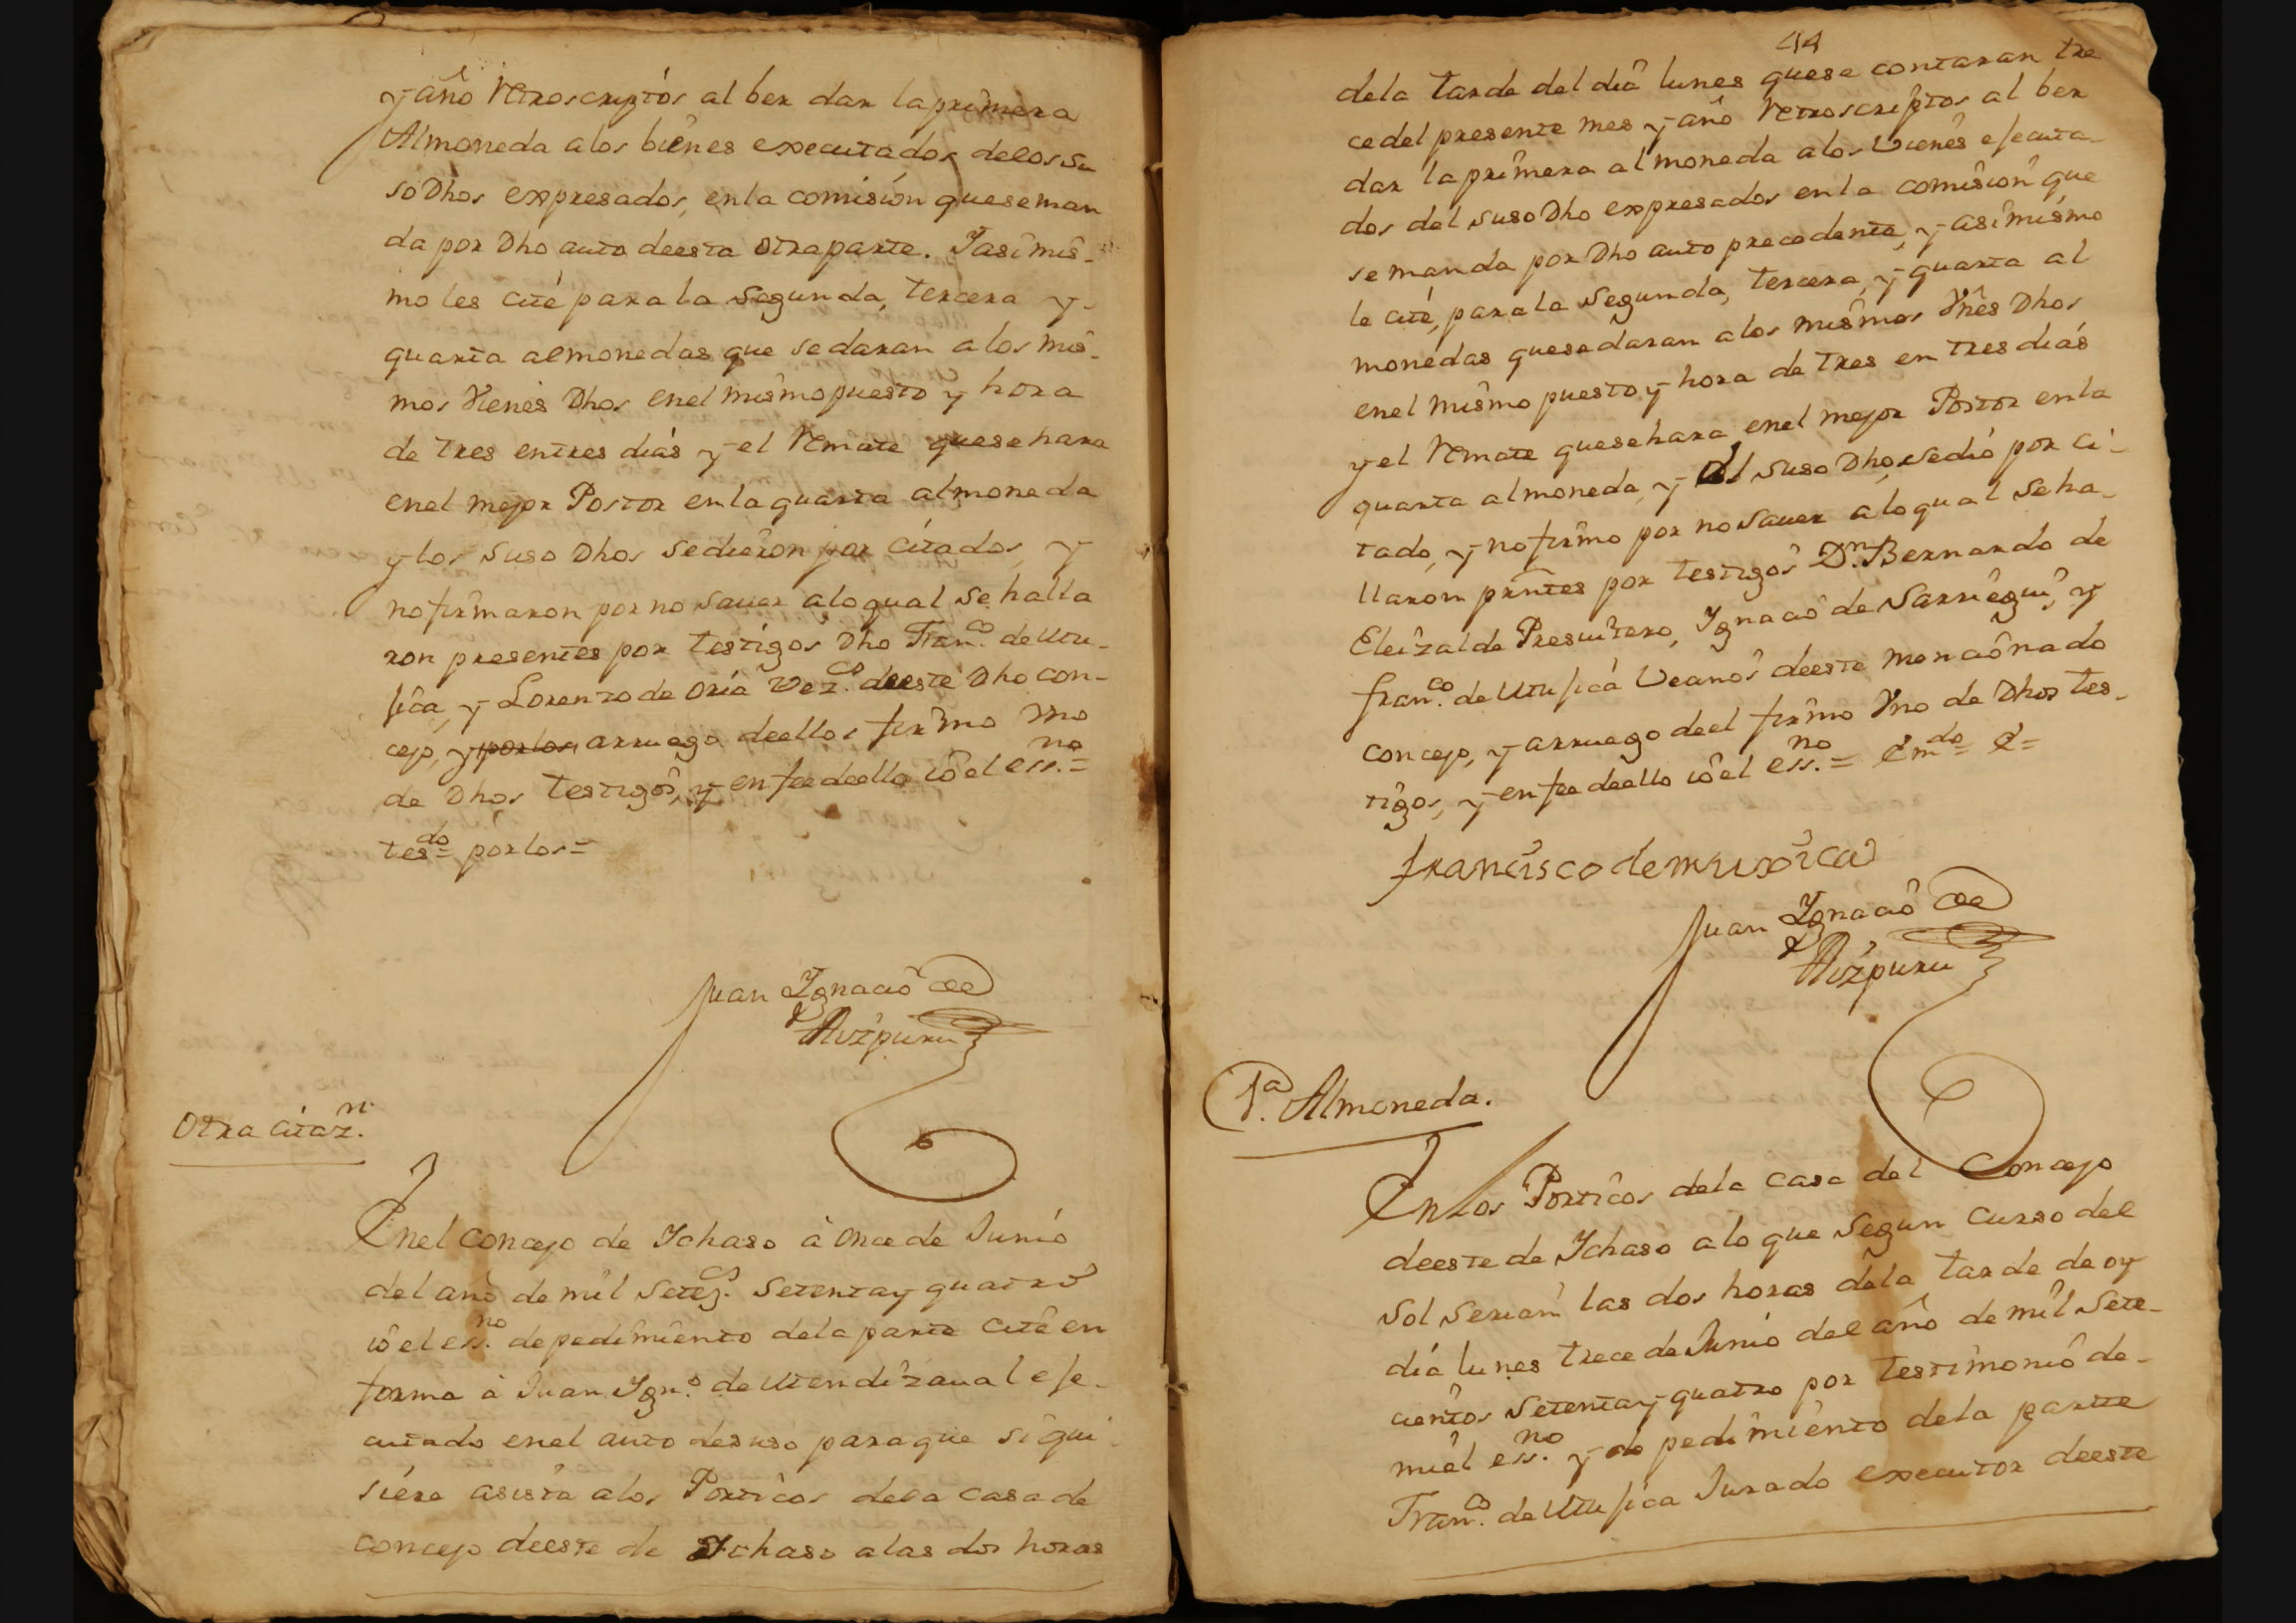 y año retroscriptos al ber dar la primera
Almoneda a los bienes executados de los su
so Dhos expresados, en la comision que se man
da por Dho auto de esta otra parte. Y asi mis-
mo les cité para la segunda, tercera y
quarta almonedas que se daran a los mis-
mos Vienes Dhos en el mismo puesto y hora
de tres en tres dias y el remate que se hara
en el mejor Postor en la quarta almoneda
y los suso Dhos se dieron por citados, y
no firmaron por no saver a lo qual se halla
ron presentes por testigos Dho Fran.co de Mu-
jica, y Lorenzo de Oria Vez.os de este Dho con-
cejo, y por los a rruego de ellos firmo Vno
de Dhos testigos, y en fee de ello io el ess.no =
tes.do = por los =
Juan Ignacio de
Aizpuru
Otra citaz.n
En el concejo de Ichaso à once de Junio
del año de mil setez.s setenta y quatro
io el ess.no de pedimiento de la parte cité en
forma à Juan Ign.o de Mendizaval eje-
cutado en el auto de suso para que si qui-
siere asista a los Porticos de la casa de
concejo de este de Ichaso a las dos horas
44
de la tarde del dia lunes que se contaran tre
ce del presente mes y año retroscriptos al ber
dar la primera almoneda a los vienes ejecuta-
dos del suso Dho expresados en la comision que
se manda por Dho auto precedente, y asi mismo
le cité, para la segunda, tercera, y quarta al
monedas que se daran a los mismos Vnes Dhos
en el mismo puesto y hora de tres en tres dias
y el remate que se hara en el mejor Postor en la
quarta almoneda, y el suso Dho, se dió por ci-
tado, y no firmo por no saver a lo qual se ha-
llaron pntes por testigos D.n Bernardo de
Eleizalde Presuitero, Ignacio de Sarriegui, y
fran.co de Mujica Veanos de este mencionado
concejo, y a rruego de el firmo Vno de Dhos tes-
tigos, y en fee de ello io el ess.no = em.do = e =
francisco de muxica
Juan Ignacio de
Aizpuru
1.a Almoneda.
En los Porticos de la casa del Concejo
de este de Ichaso a lo que segun curso del
sol serian las dos horas de la tarde de oy
dia lunes trece de Junio del año de mil sete-
cientos setenta y quatro por testimonio de-
mi el ess.no y de pedimiento de la partte
Fran.co de Mujica Jurado executor de este